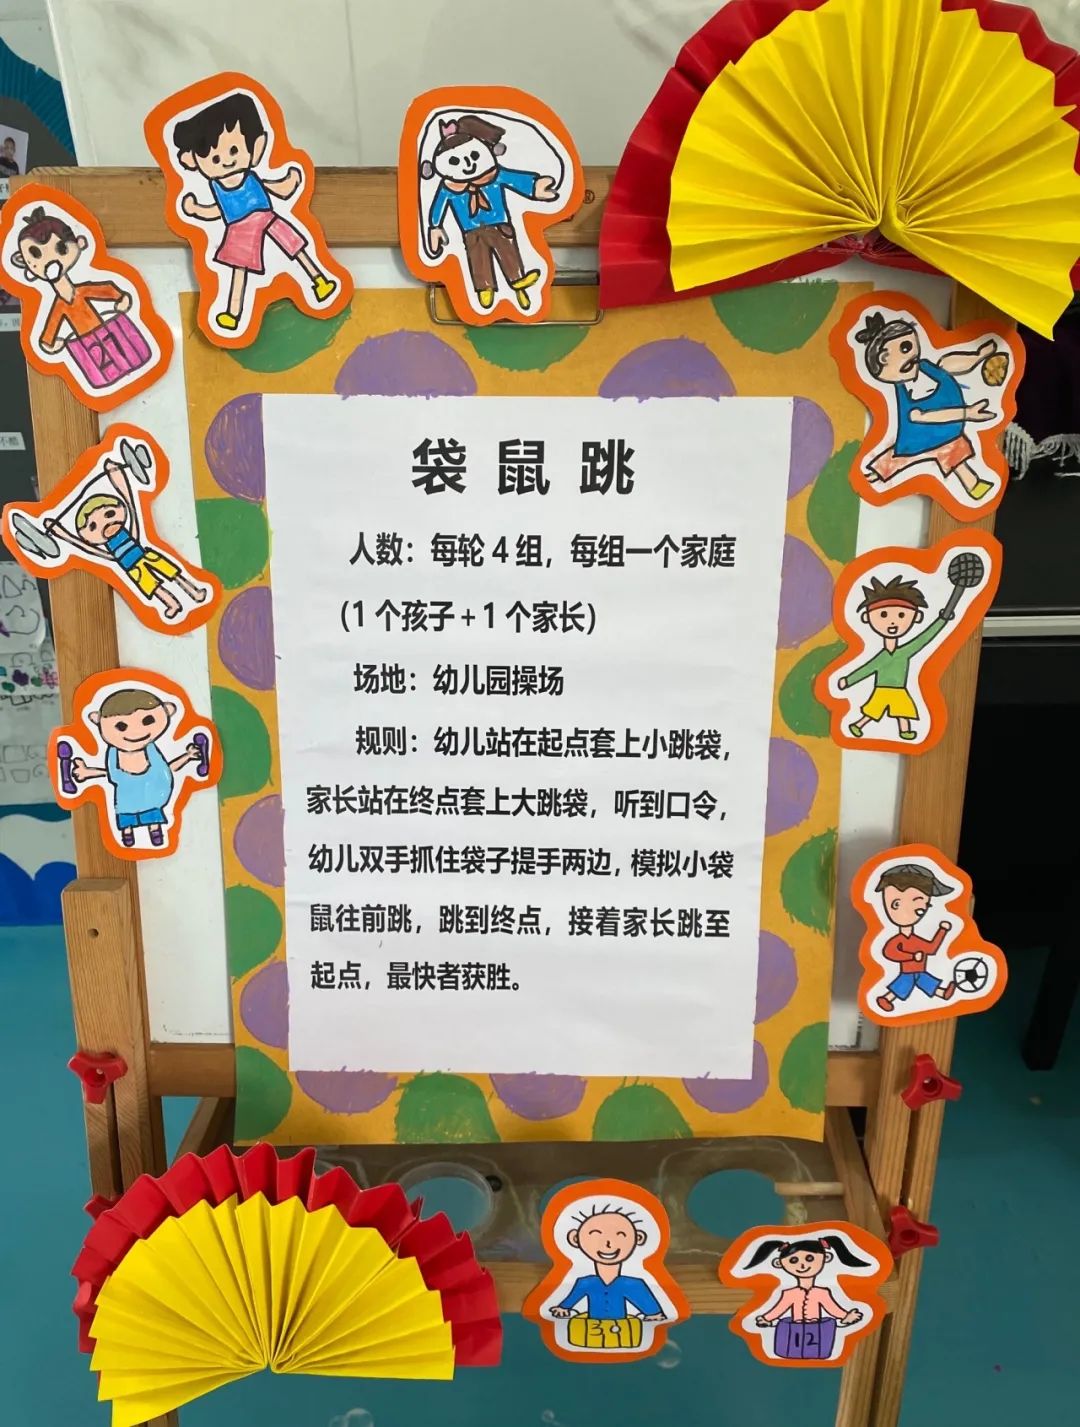 袋鼠跳
人数：每轮 4 组，每组一个家庭
（1 个孩子 + 1 个家长）
场地：幼儿园操场
规则：幼儿站在起点套上小跳袋，
家长站在终点套上大跳袋，听到口令，
幼儿双手抓住袋子提手两边，模拟小袋
鼠往前跳，跳到终点，接着家长跳至
起点，最快者获胜。
27
39
12